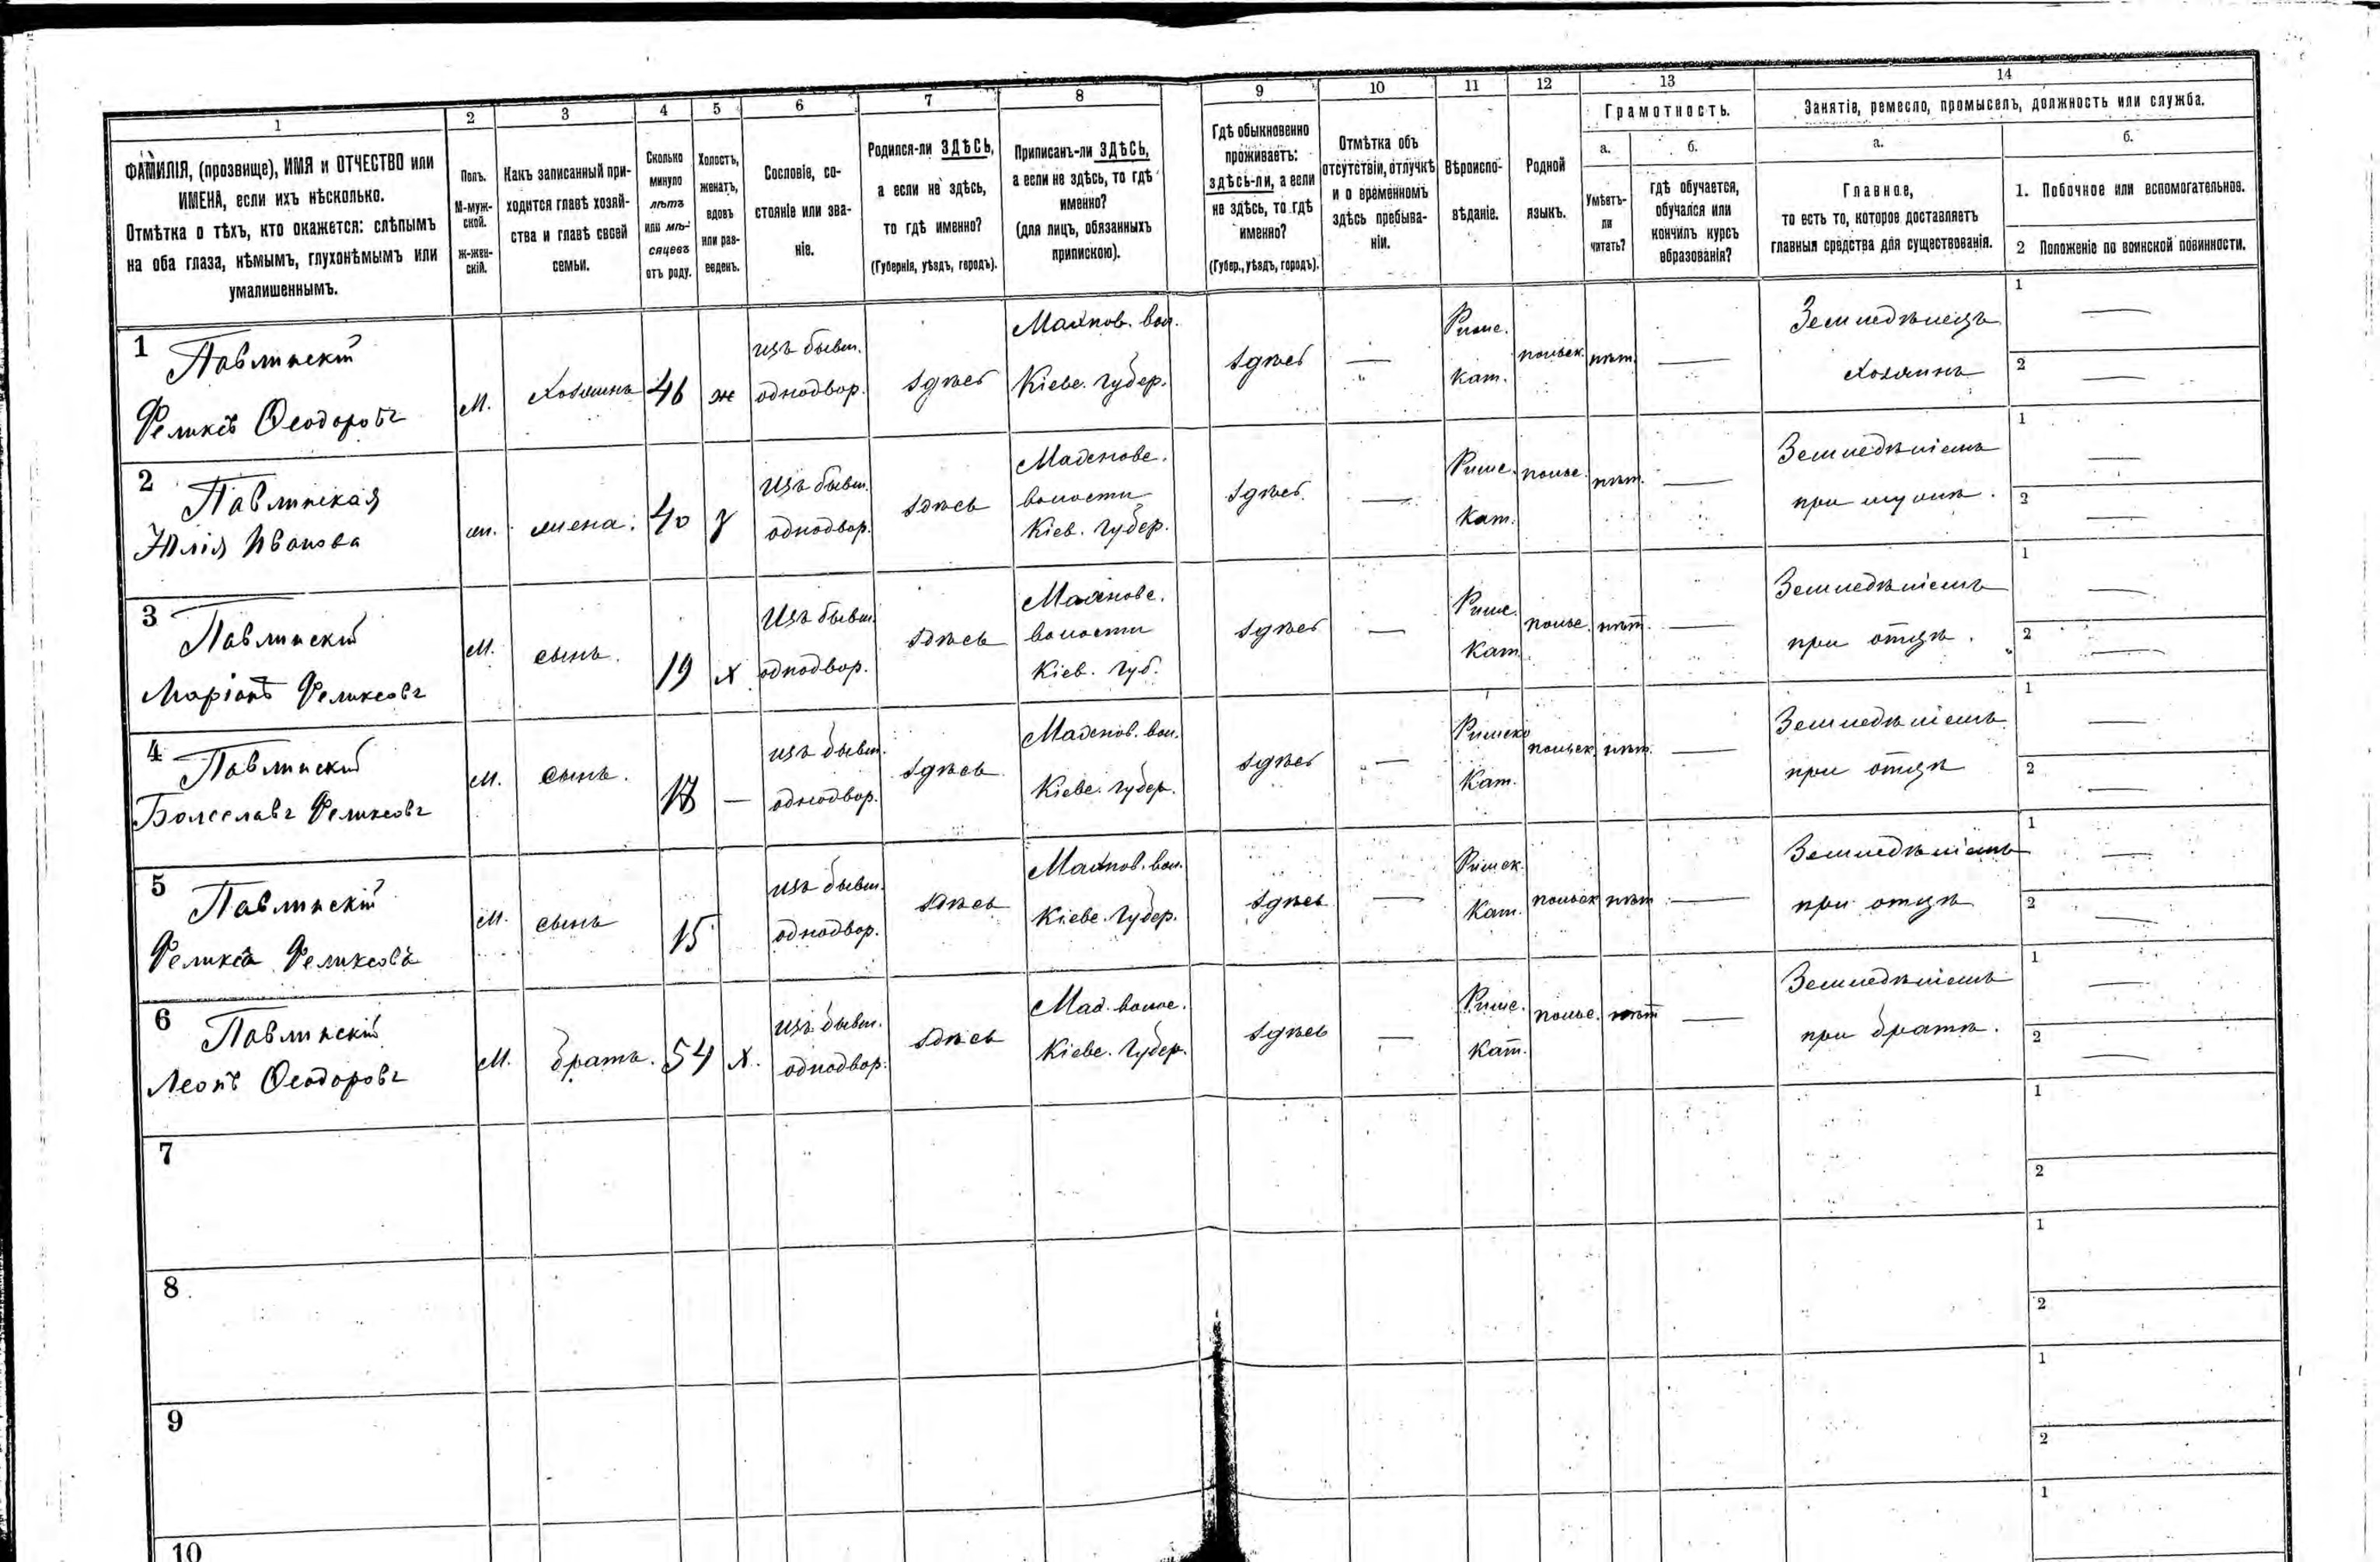 1 2 3 4 5 6 7 8 9 10 11 12 13 14
ФАМИЛІЯ, (прозвище), ИМЯ и ОТЧЕСТВО или
ИМЕНА, если ихъ нѣсколько.
Отмѣтка о тѣхъ, кто окажется: слѣпымъ
на оба глаза, нѣмымъ, глухонѣмымъ или
умалишеннымъ.
Полъ.
М-муж-
ской.
Ж-жен-
скій.
Какъ записанный при-
ходится главѣ хозяй-
ства и главѣ своей
семьи.
Сколько
минуло
лѣтъ
или мѣ-
сяцевъ
отъ роду.
Холостъ,
женатъ,
вдовъ
или раз-
веденъ.
Сословіе, со-
стояніе или зва-
ніе.
Родился-ли ЗДѢСЬ,
а если не здѣсь,
то гдѣ именно?
(Губернія, уѣздъ, городъ).
Приписанъ-ли ЗДѢСЬ,
а если не здѣсь, то гдѣ
именно?
(для лицъ, обязанныхъ
припискою).
Гдѣ обыкновенно
проживаетъ:
здѣсь-ли, а если
не здѣсь, то гдѣ
именно?
(Губер., уѣздъ, городъ).
Отмѣтка объ
отсутствіи, отлучкѣ
и о временномъ
здѣсь пребыва-
ніи.
Вѣроиспо-
вѣданіе.
Родной
языкъ.
Грамотность.
а.
Умѣетъ-
ли
читать?
б.
гдѣ обучается,
обучался или
кончилъ курсъ
образованія?
Занятіе, ремесло, промыселъ, должность или служба.
а.
Главное,
то есть то, которое доставляетъ
главныя средства для существованія.
б.
1. Побочное или вспомогательное.
2 Положеніе по воинской повинности.
1
Павлинскій
Феликсъ Ѳеодоровъ
М.
Хозяинъ
46
ж
изъ бывш.
однодвор.
здѣсь
вол.
Кіевс. губер.
здѣсь
—
Римс.
Кат.
польск.
нѣт.
—
Земледѣлецъ
хозяинъ
1 —
2 —
2
Павлинская
Юлія Иванова
ж.
жена.
40
з
Изъ бывш.
однодвор.
здѣсь
волости
Кіев. губер.
здѣсь.
—
Римс.
Кат.
польс.
нѣт.
—
Земледѣліемъ
при мужѣ.
1 —
2 —
3
Павлинскій
Маріанъ Феликсовъ
М.
сынъ.
19
х
Изъ бывш.
однодвор.
здѣсь
волости
Кіев. губ.
здѣсь
—
Римс.
Кат.
польс.
нѣт.
—
Земледѣліемъ
при отцѣ.
1 —
2 —
4
Павлинскій
Болеславъ Феликсовъ
М.
сынъ.
—
изъ бывш.
однодвор.
здѣсь
вол.
Кіевс. губер.
здѣсь
—
Римско
Кат.
польск.
нѣт.
—
Земледѣліемъ
при отцѣ
1 —
2 —
5
Павлинскій
Феликсъ Феликсовъ
М.
сынъ
15
изъ бывш.
однодвор.
здѣсь
вол.
Кіевс. губер.
здѣсь
—
Римск.
Кат.
польск
нѣт
—
Земледѣліемъ
при отцѣ
1 —
2 —
6
Павлинскій
Леонъ Ѳеодоровъ
М.
братъ.
54
х.
изъ бывш.
однодвор.
здѣсь
волос.
Кіевс. губер.
здѣсь
—
Римс.
Кат.
польс.
нѣт
—
Земледѣліемъ
при братѣ.
1 —
2 —
7
1
2
8
1
2
9
1
2
10
1